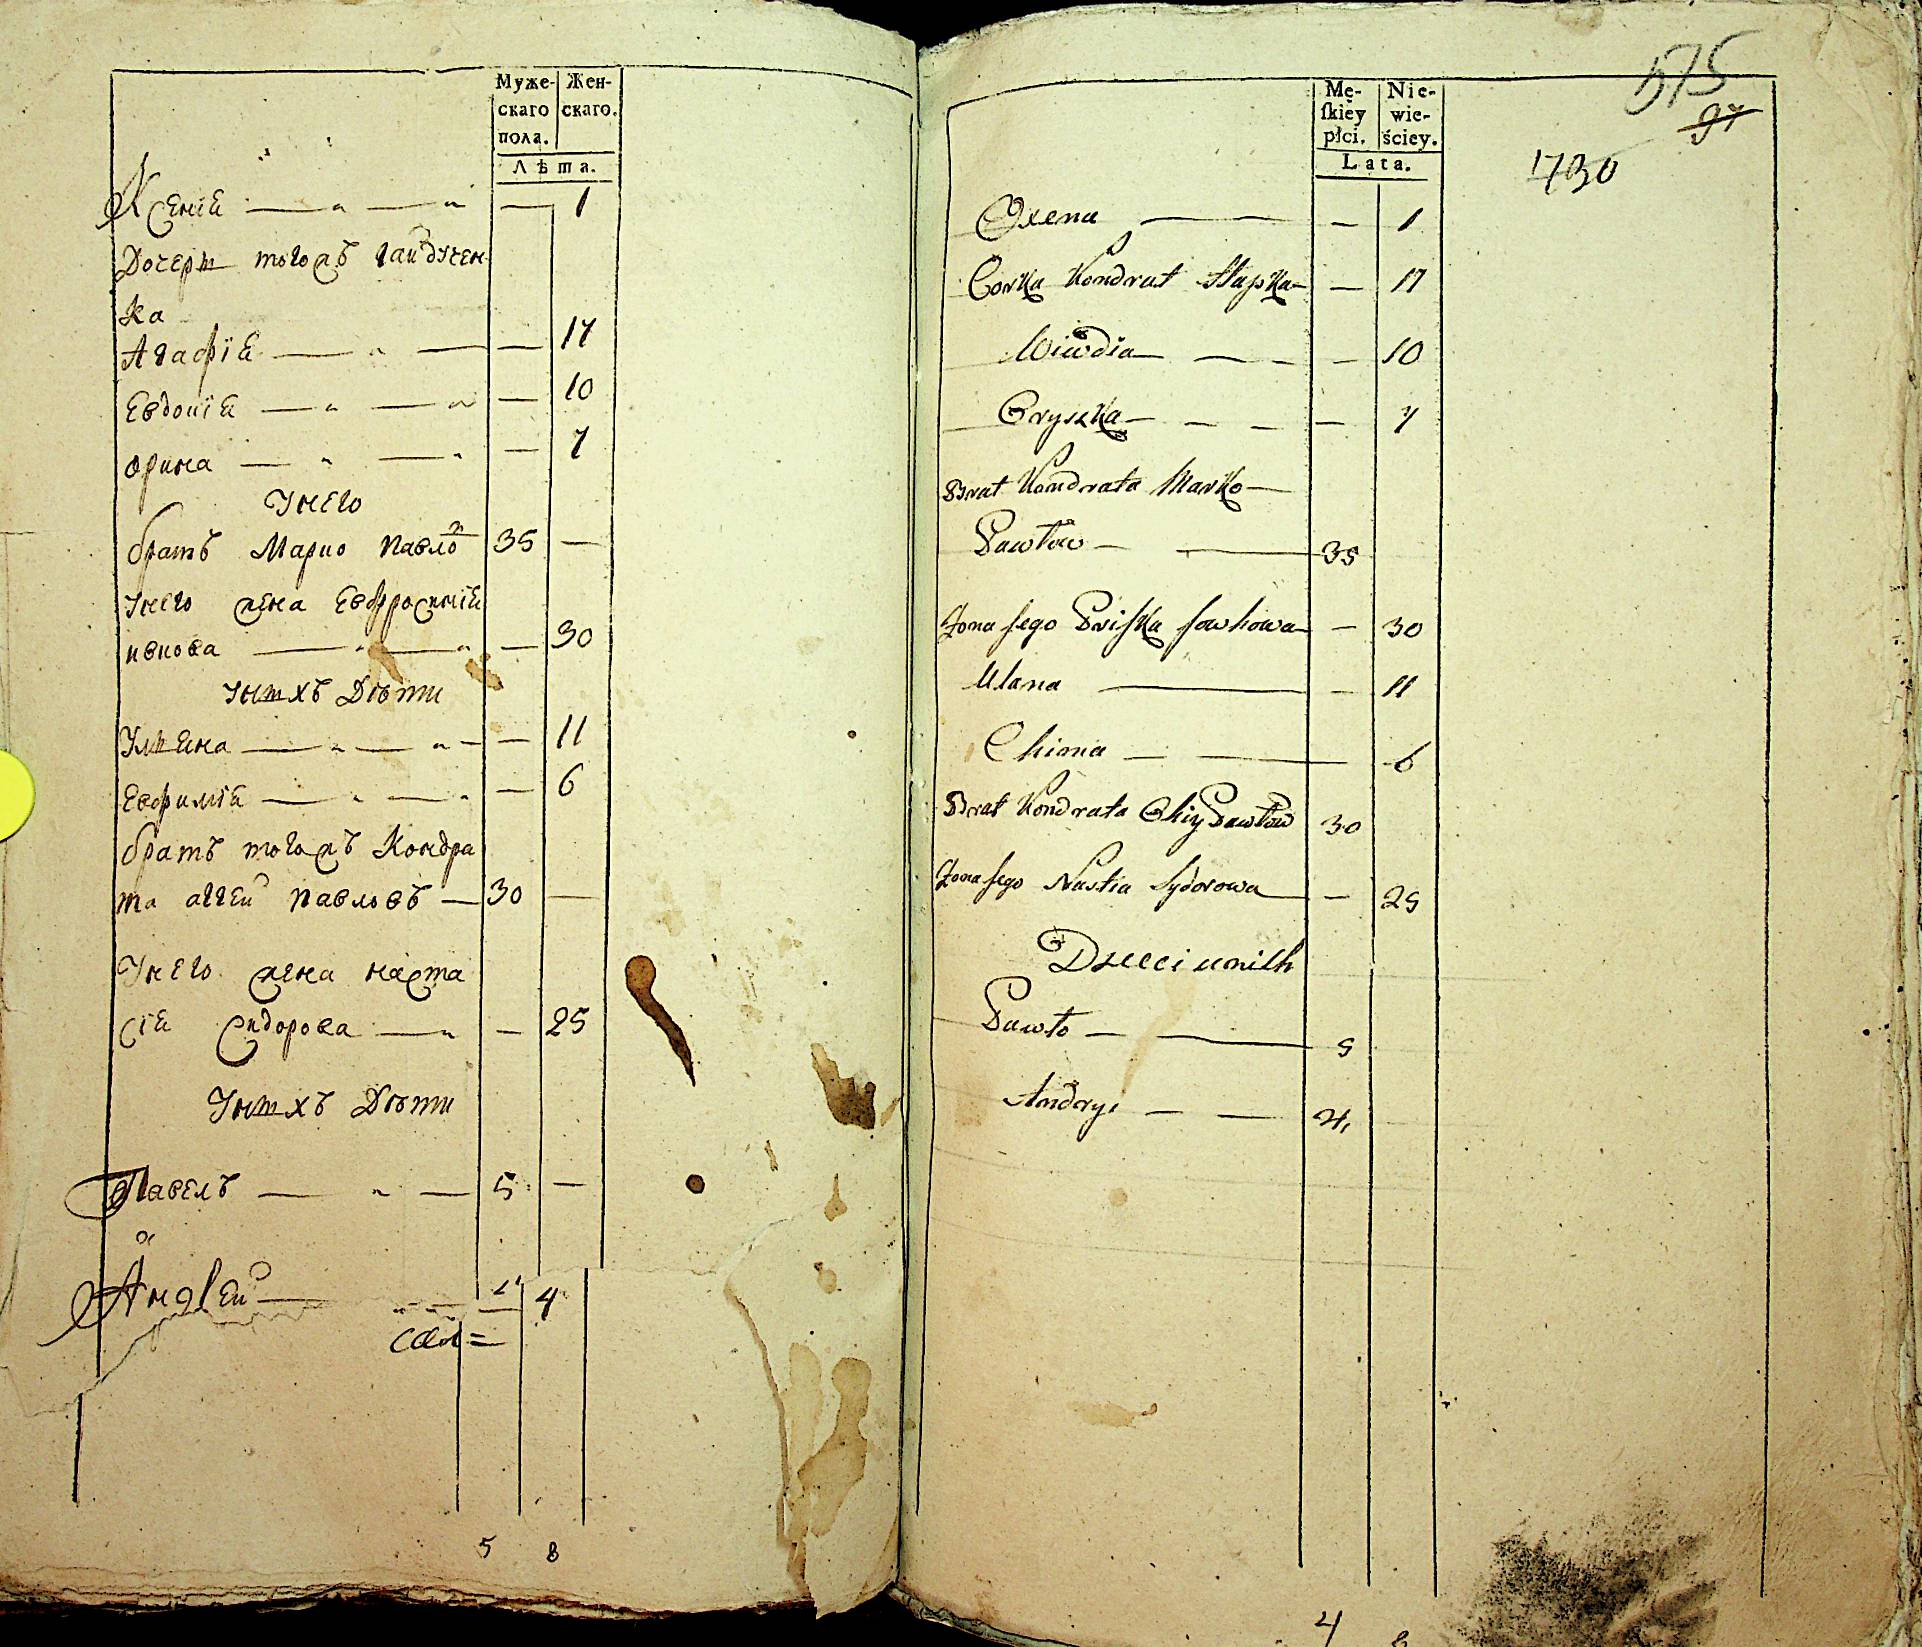 Муже-
скаго
пола.
Жен-
скаго.
Лѣта.
Ксенія — „ — „ — 1
Дочери тогожъ гайдучен
ка
Агафія — „ — — 17
Евдокія — „ — „ — 10
орина — „ — „ — 7
Унего
братъ Марко павло 35 —
Унего жена Евфросинія
ивнова — „ — „ — 30
Унихъ Дѣти
Ульяна — „ — „ — 11
Евфимія — „ — „ — 6
братъ тогожъ Кондра
та аггей павловъ — 30 —
Унего жена наста
сія Сидорова — „ — 25
Унихъ Дѣти
Павелъ — „ — 5 —
Андрей — 4
5 8
575
97
1730
Mę-
ſkiey
płci.
Nie-
wie-
ściey.
Lata.
Oxena — — — 1
Corka Kondrat Hapka — — 17
Wiwdia — — — — 10
Oryszka — — — — 7
Brat Kondrata Marko —
Pawłow — — 35
Żona jego Priſka — 30
Ulana — — 11
Chima — — 6
Brat Kondrata Ohiy Pawłow 30
Żona jego Nastia Sydorowa — 25
Dzieci unich
Pawło — — 5
Andryi — — 4
4 8